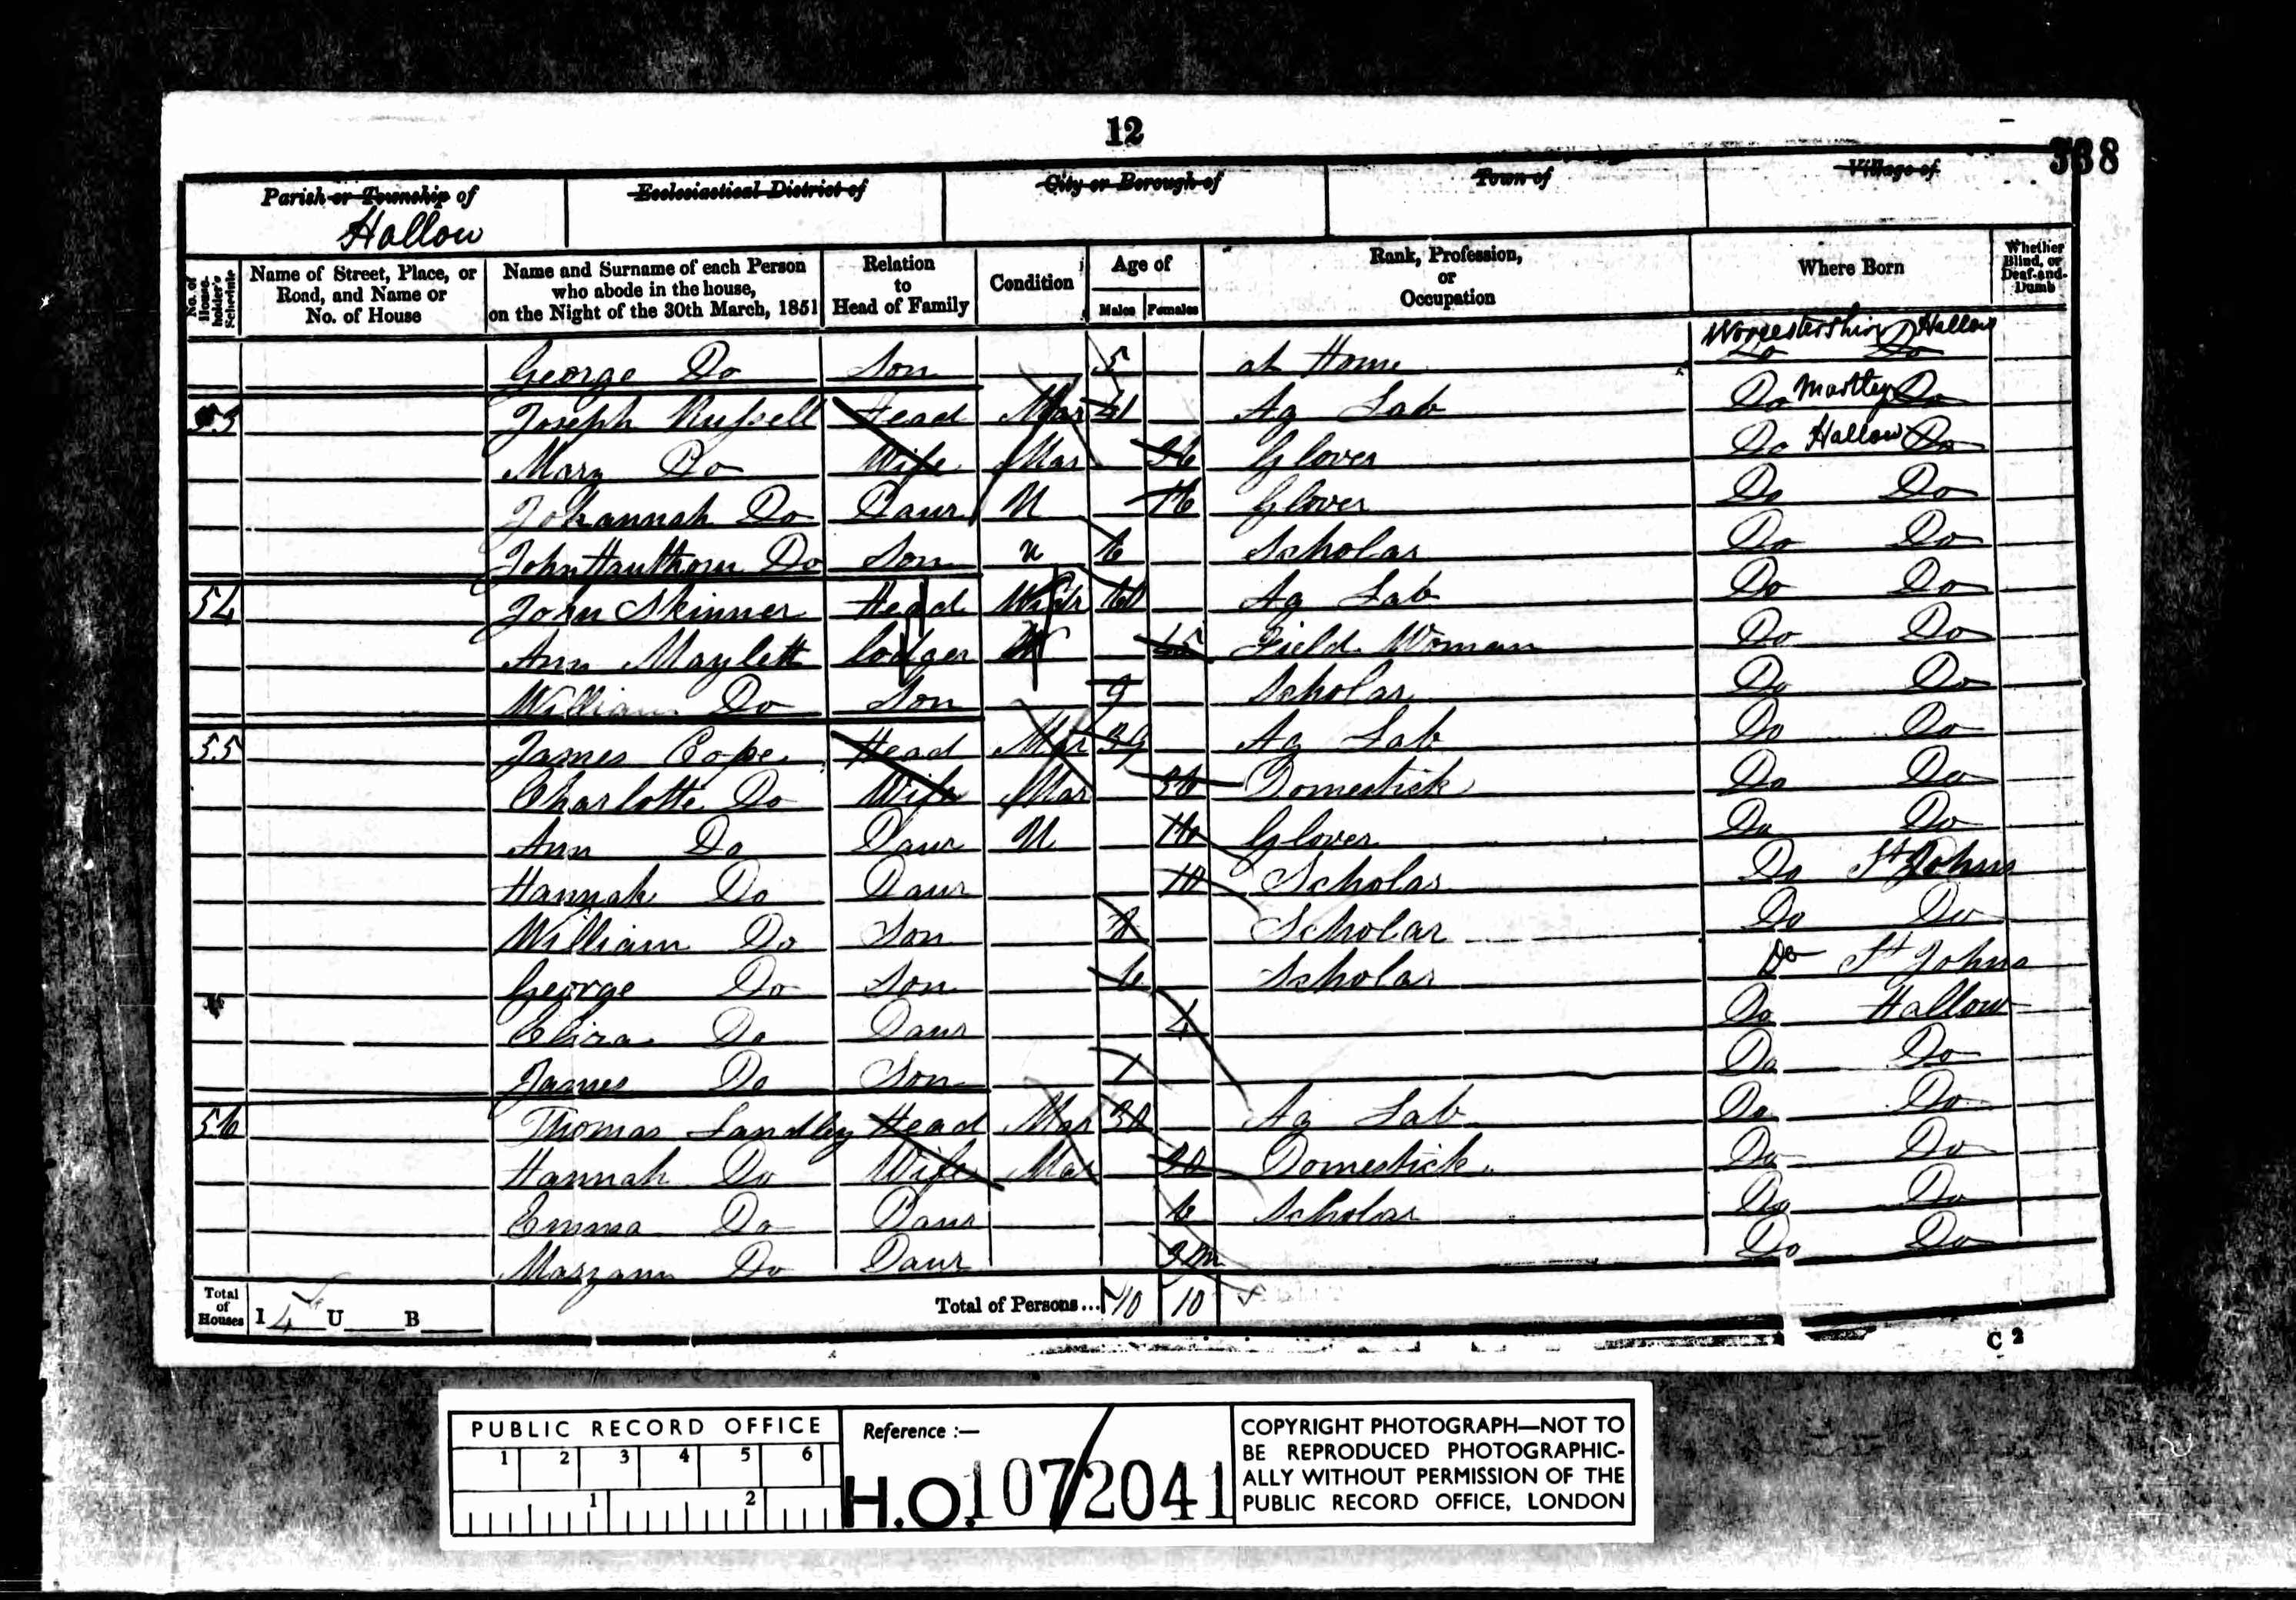 12
338
Parish or Township of
Hallow
Ecclesiastical District of
City or Borough of
Town of
Village of
No. of House-holder's Schedule
Name of Street, Place, or Road, and Name or No. of House
Name and Surname of each Person who abode in the house, on the Night of the 30th March, 1851
Relation to Head of Family
Condition
Age of
Males Females
Rank, Profession, or Occupation
Where Born
Whether Blind, or Deaf-and-Dumb
Worcestershire Hallow
George Do Son 5 at Home Do Do
53 Joseph Russell Head Mar 41 Ag Lab Do Martley Do
Mary Do Wife Mar 36 Glover Do Hallow Do
Johannah Do Daur U 16 Glover Do Do
John Hauthorn Do Son U 6 Scholar Do Do
54 John Skinner Head Widr Ag Lab Do Do
Ann Maylett Lodger Field Woman Do Do
William Do Son 9 Scholar Do Do
55 James Cope Head Mar 39 Ag Lab Do Do
Charlotte Do Wife Mar 36 Domestick Do Do
Ann Do Daur U Glover Do Do
Hannah Do Daur 10 Scholar Do St Johns
William Do Son Scholar Do Do
George Do Son 6 Scholar Do St Johns
Eliza Do Daur 4 Do Hallow
James Do Son 1 Do Do
56 Thomas Landley Head Mar 30 Ag Lab Do Do
Hannah Do Wife Mar 30 Domestick Do Do
Emma Do Daur 6 Scholar Do Do
Maryann Do Daur 3m Do Do
Total of Houses I 4 U B Total of Persons... 10 10
C 2
PUBLIC RECORD OFFICE
1 2 3 4 5 6
1 2
Reference :—
H.O. 107/2041
COPYRIGHT PHOTOGRAPH—NOT TO
BE REPRODUCED PHOTOGRAPHIC-
ALLY WITHOUT PERMISSION OF THE
PUBLIC RECORD OFFICE, LONDON